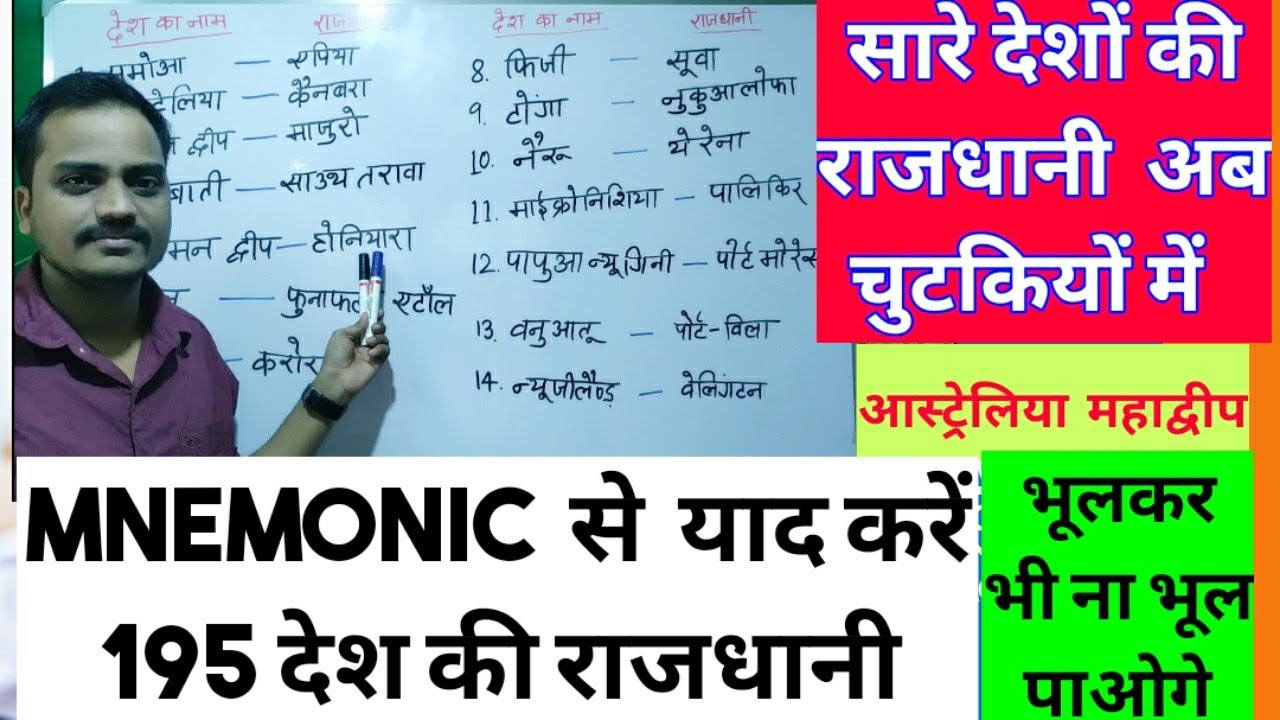 देश का नाम
देश का नाम
राजधानी
एपिया
कैनबरा
द्वीप — माजुरो
साउथ तरावा
द्वीप — होनियारा
एटॉल
8. फिजी — सूवा
9. टोंगा — नुकुआलोफा
10. नौरू — येरेना
11. माईक्रोनिशिया — पालिकिर
12. पापुआ न्यू गिनी — पोर्ट
13. वनुआतू — पोर्ट-विला
14. न्यूजीलैण्ड — वेलिंगटन
सारे देशों की
राजधानी अब
चुटकियों में
आस्ट्रेलिया महाद्वीप
MNEMONIC से याद करें
195 देश की राजधानी
भूलकर
भी ना भूल
पाओगे